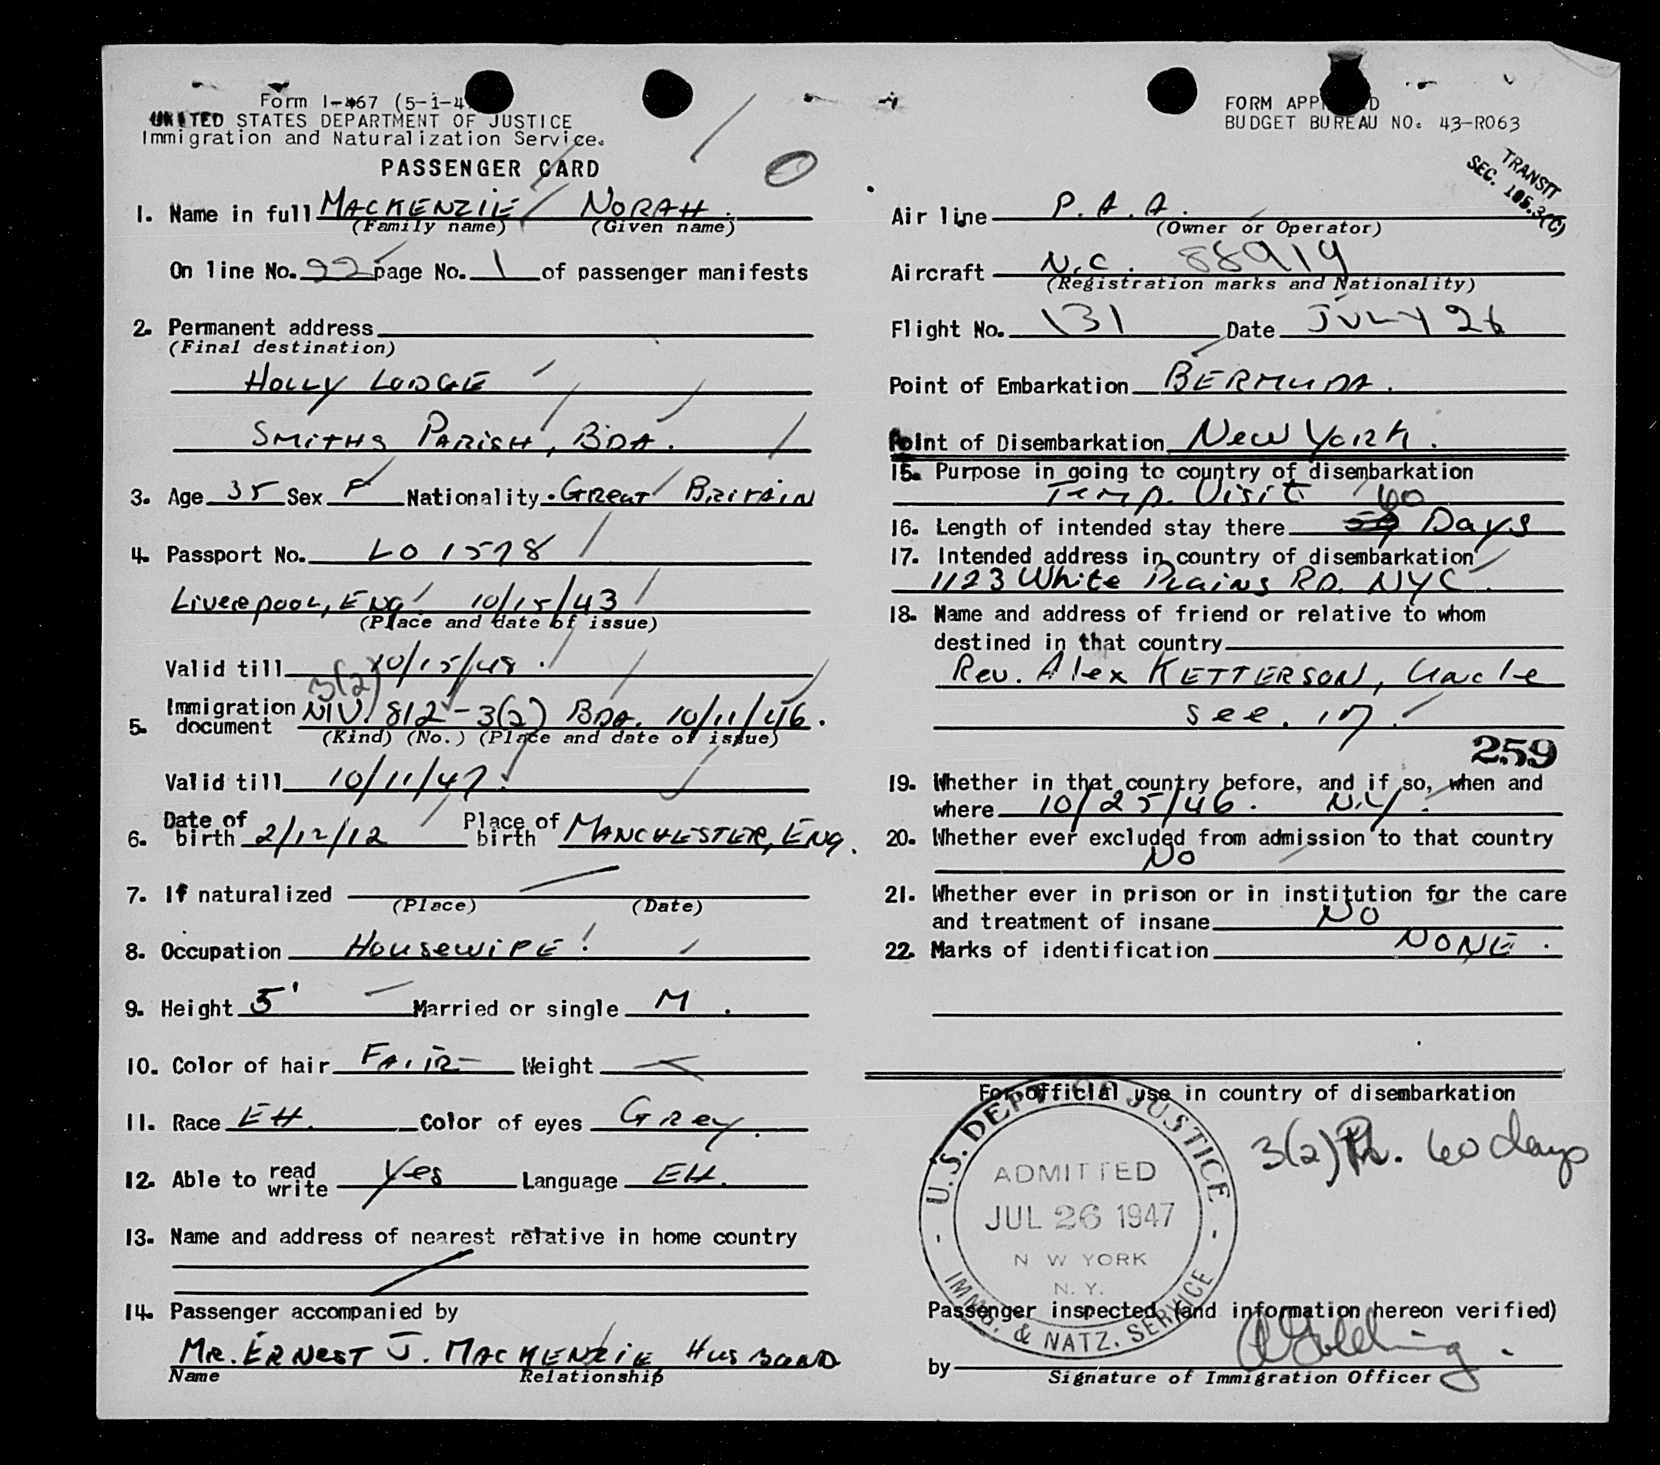 Form I-467 (5-1-4
UNITED STATES DEPARTMENT OF JUSTICE
Immigration and Naturalization Service.
PASSENGER CARD
1. Name in full MACKENZIE NORAH.
(Family name) (Given name)
On line No. 22 page No. 1 of passenger manifests
2. Permanent address
(Final destination)
HOLLY LODGE
SMITHS PARISH, BDA.
3. Age 35 Sex F Nationality. GREAT BRITAIN
4. Passport No. LO 1578
LIVERPOOL, ENG. 10/15/43
(Place and date of issue)
Valid till 10/15/48.
3(2)
5. Immigration document NIV. 812-3(2) BDA. 10/11/46.
(Kind) (No.) (Place and date of issue)
Valid till 10/11/47.
6. Date of birth 2/12/12 Place of birth MANCHESTER, ENG.
7. If naturalized
(Place) (Date)
8. Occupation HOUSEWIFE.
9. Height 5' Married or single M.
10. Color of hair FAIR Weight
11. Race EH. Color of eyes GREY.
12. Able to read write Yes Language EH.
13. Name and address of nearest relative in home country
14. Passenger accompanied by
MR. ERNEST J. MACKENZIE HUSBAND
Name Relationship
FORM APPROVED
BUDGET BUREAU NO. 43-R063
TRANSIT
SEC. 105.3(C)
Air line P.A.A.
(Owner or Operator)
Aircraft N.C. 88919
(Registration marks and Nationality)
Flight No. 131 Date JULY 26
Point of Embarkation BERMUDA.
Point of Disembarkation New York.
15. Purpose in going to country of disembarkation
Temp. Visit
16. Length of intended stay there 60 Days
17. Intended address in country of disembarkation
1123 White Plains RD. NYC.
18. Name and address of friend or relative to whom
destined in that country
Rev. Alex KETTERSON, Uncle
see. 17.
259
19. Whether in that country before, and if so, when and
where 10/25/46. N.Y.
20. Whether ever excluded from admission to that country
NO
21. Whether ever in prison or in institution for the care
and treatment of insane NO
22. Marks of identification NONE.
For official use in country of disembarkation
3(2) 60 days
U.S. DEPT. OF JUSTICE
ADMITTED
JUL 26 1947
N W YORK
N. Y.
IMMG. & NATZ. SERVICE
Passenger inspected (and information hereon verified)
by
Signature of Immigration Officer